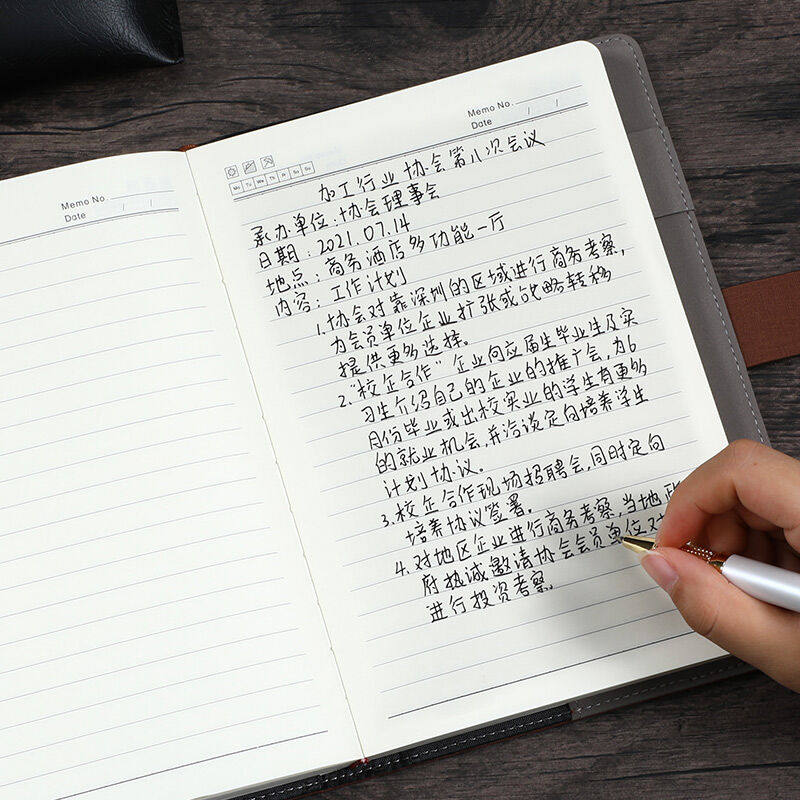 Memo No.
Date / /
Memo No.
Date / /
Mo Tu We Th Fr Sa Su
加工行业协会第八次会议
承办单位:协会理事会
日期:2021.07.14
地点:商务酒店多功能一厅
内容:工作计划
1.协会对靠深圳的区域进行商务考察,
为会员单位企业扩张或战略转移
提供更多选择。
2."校企合作"企业向应届生毕业生及实
习生介绍自己的企业的推广会,为6
月份毕业或出校实业的学生有更多
的就业机会,并洽谈定向培养学生
计划协议。
3.校企合作现场招聘会,同时定向
培养协议签署。
4.对地区企业进行商务考察,当地政
府热诚邀请协会会员单位对
进行投资考察。